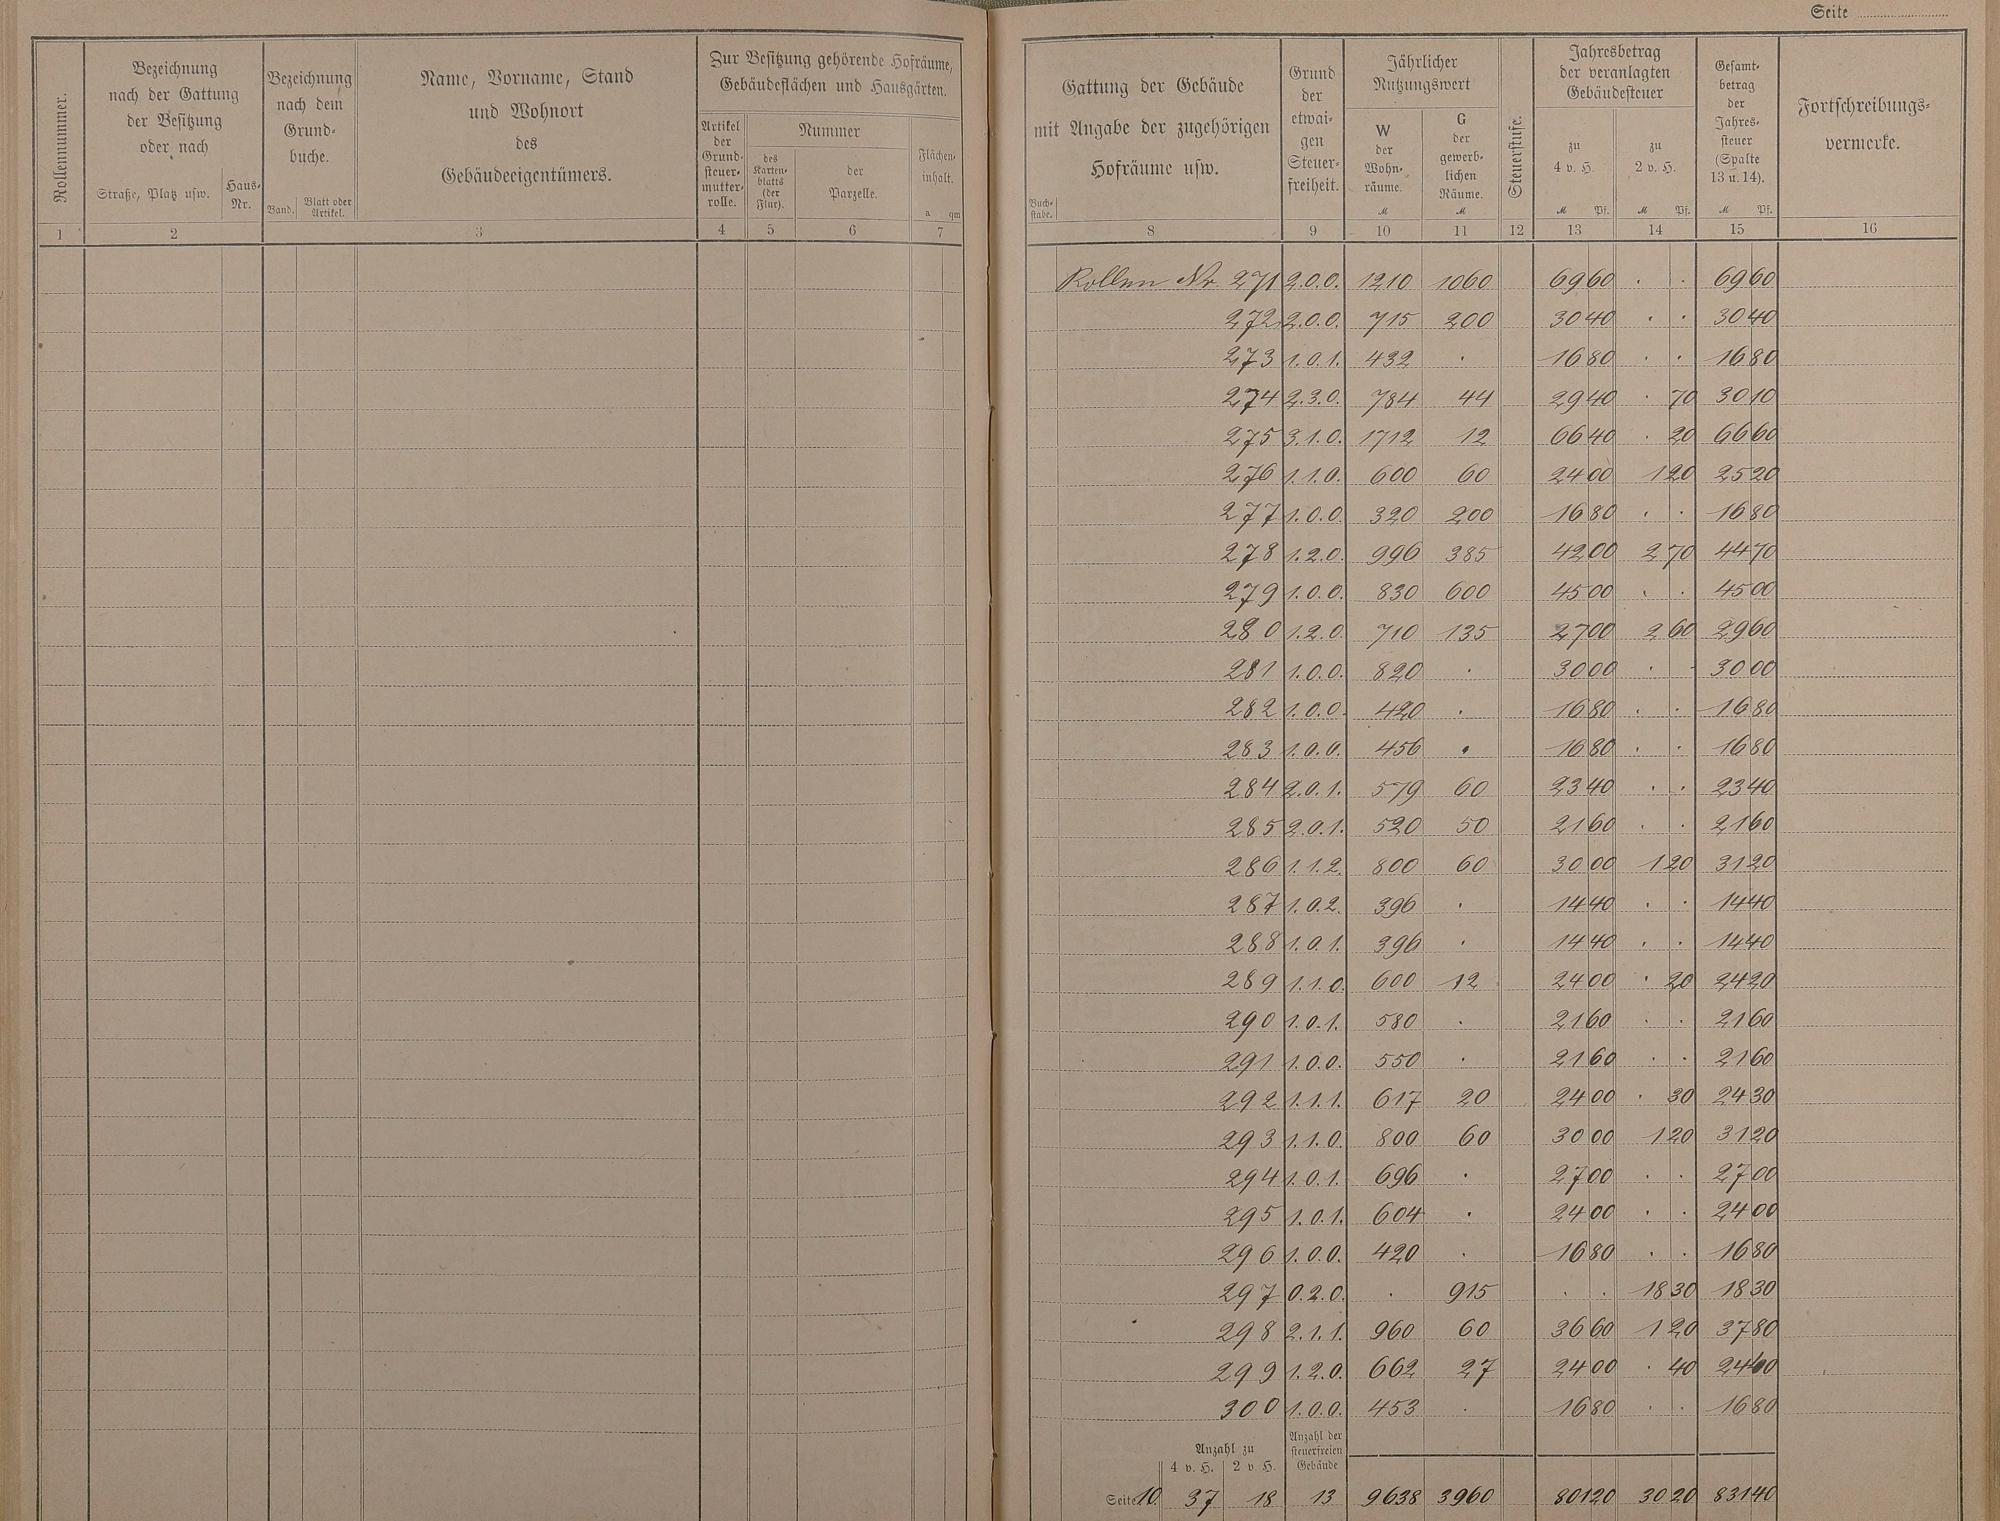 Seite
Rollennummer.
Bezeichnung
nach der Gattung
der Besitzung
oder nach
Straße, Platz usw.
Haus-
Nr.
Bezeichnung
nach dem
Grund-
buche.
Band.
Blatt oder
Artikel.
Name, Vorname, Stand
und Wohnort
des
Gebäudeeigentümers.
Zur Besitzung gehörende Hofräume,
Gebäudeflächen und Hausgärten.
Artikel
der
Grund-
steuer-
mutter-
rolle.
Nummer
des
Karten-
blatts
(der
Flur).
der
Parzelle.
Flächen-
inhalt.
a qm
1 2 3 4 5 6 7
Gattung der Gebäude
mit Angabe der zugehörigen
Hofräume usw.
Buch-
stabe.
Grund
der
etwai-
gen
Steuer-
freiheit.
Jährlicher
Nutzungswert
W
der
Wohn-
räume.
M
G
der
gewerb-
lichen
Räume.
M
Steuerstufe.
Jahresbetrag
der veranlagten
Gebäudesteuer
zu
4 v. H.
M Pf.
zu
2 v. H.
M Pf.
Gesamt-
betrag
der
Jahres-
steuer
(Spalte
13 u. 14).
M Pf.
Fortschreibungs-
vermerke.
8 9 10 11 12 13 14 15 16
Rollen Nr. 271 2.0.0. 1210 1060 69 60 . . 69 60
272 2.0.0. 715 200 30 40 . . 30 40
273 1.0.1. 432 . 16 80 . . 16 80
274 2.3.0. 784 44 29 40 . 70 30 10
275 3.1.0. 1712 12 66 40 . 20 66 60
276 1.1.0. 600 60 24 00 1 20 25 20
277 1.0.0. 320 200 16 80 . . 16 80
278 1.2.0. 996 385 42 00 2 70 44 70
279 1.0.0. 830 600 45 00 . . 45 00
280 1.2.0. 710 135 27 00 2 60 29 60
281 1.0.0. 820 . 30 00 . . 30 00
282 1.0.0. 420 . 16 80 . . 16 80
283 1.0.0. 456 . 16 80 . . 16 80
284 2.0.1. 579 60 23 40 . . 23 40
285 2.0.1. 520 50 21 60 . . 21 60
286 1.1.2. 800 60 30 00 1 20 31 20
287 1.0.2. 396 . 14 40 . . 14 40
288 1.0.1. 396 . 14 40 . . 14 40
289 1.1.0. 600 12 24 00 . 20 24 20
290 1.0.1. 580 . 21 60 . . 21 60
291 1.0.0. 550 . 21 60 . . 21 60
292 1.1.1. 617 20 24 00 . 30 24 30
293 1.1.0. 800 60 30 00 1 20 31 20
294 1.0.1. 696 . 27 00 . . 27 00
295 1.0.1. 604 . 24 00 . . 24 00
296 1.0.0. 420 . 16 80 . . 16 80
297 0.2.0. . 915 . . 18 30 18 30
298 2.1.1. 960 60 36 60 1 20 37 80
299 1.2.0. 662 27 24 00 . 40 24 40
300 1.0.0. 453 . 16 80 . . 16 80
Anzahl zu
4 v. H. 2 v. H.
Anzahl der
steuerfreien
Gebäude
Seite 10. 37 18 13 9638 3960 801 20 30 20 831 40